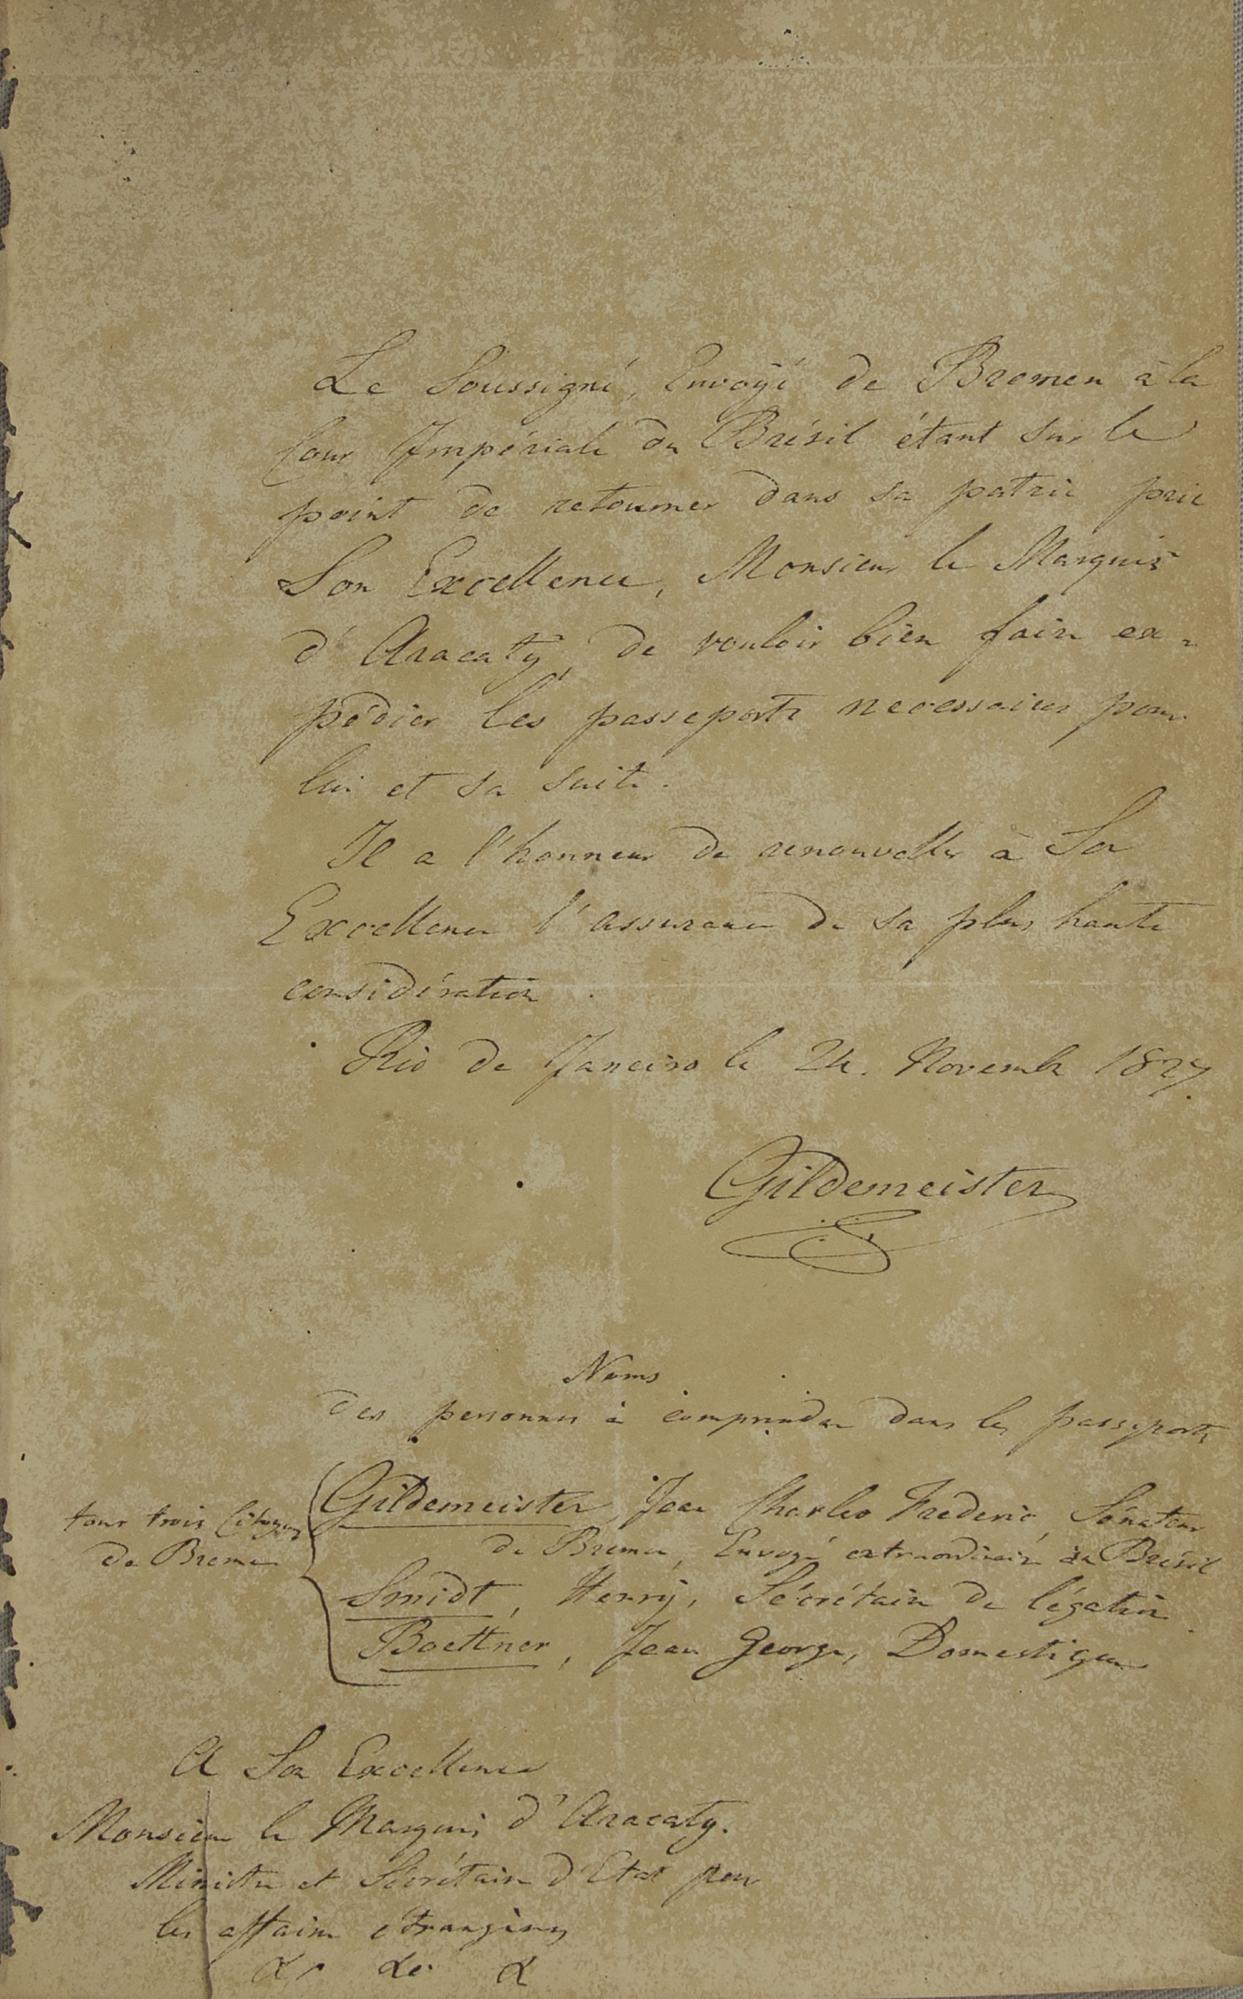 Le Soussigné, Envoyé de Bremen à la
Cour Impériale du Brésil étant sur le
point de retourner dans sa patrie prie
Son Excellence, Monsieur le Marquis
d'Aracaty, de vouloir bien faire ex-
pédier les passeports necessaires pour
lui et sa suite.
Il a l'honneur de renouveller à Son
Excellence l'assurance de sa plus haute
considération.
Rio de Janeiro le 24. Novembr 1827.
Gildemeister
Noms
des personnes à comprendre dans les passeports
Gildemeister, Jean Charles Frederic, Sénateur
de Breme, Envoyé extraordinaire au Brésil
Smidt, Henry, Sécrétaire de légation
Boettner, Jean George, Domestique
tous trois Citoyens
de Breme
A Son Excellence
Monsieur le Marquis d'Aracaty.
Ministre et Sécrétaire d'Etat pour
les affaires étrangères
&c &c &